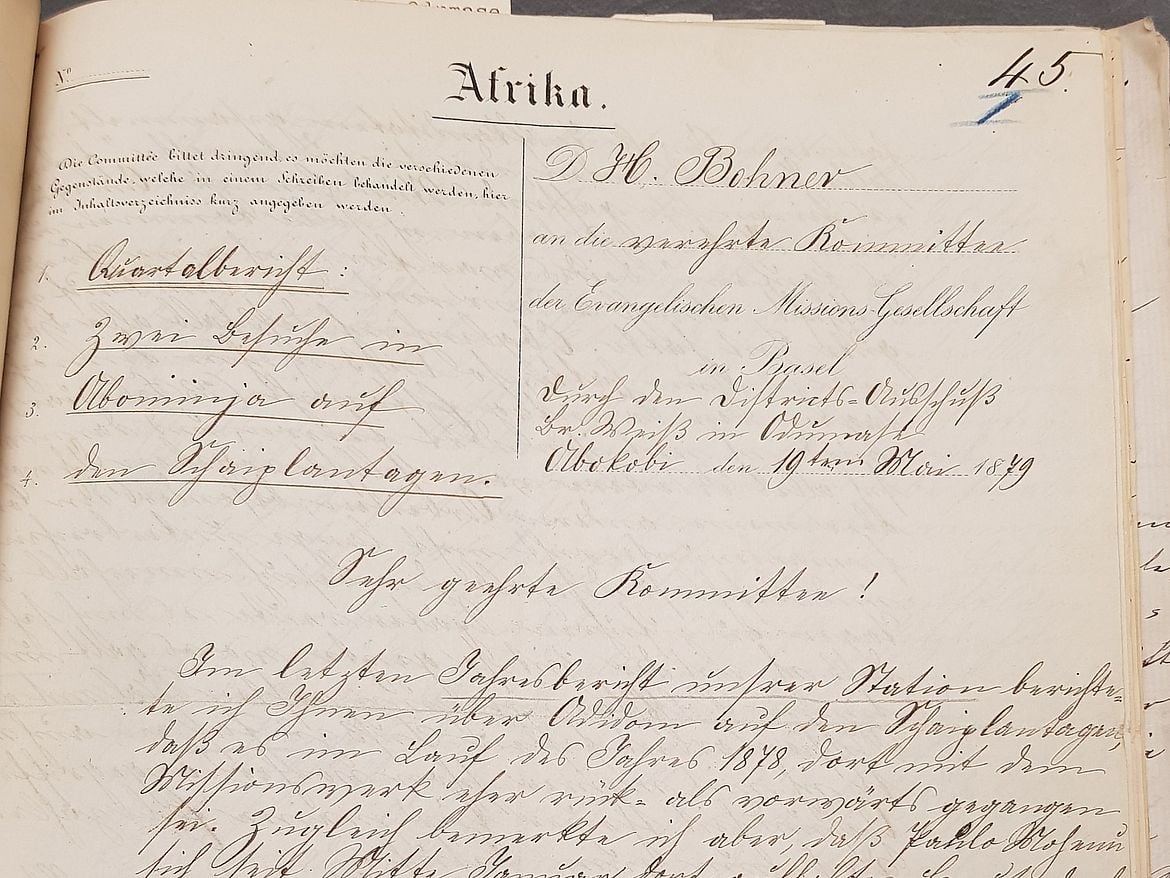 Nº
Afrika.
45.
Die Committée bittet dringend, es möchten die verschiedenen
Gegenstände, welche in einem Schreiben behandelt werden, hier
im Inhaltsverzeichniss kurz angegeben werden.
1. Quartalbericht:
2. Zwei Besuche in
3. Abominja auf
4. den Schaiplantagen.
D H. Bohner
an die verehrte Kommittee
der Evangelischen Missions-Gesellschaft
in Basel
Durch den Districts-Ausschuß
Br. Weiß in Odumase
Abokobi den 19ten Mai 1879
Sehr geehrte Kommittee!
Im letzten Jahresbericht unsrer Station berichte-
te ich Ihnen über Adidom auf den Schaiplantagen,
daß es im Lauf des Jahres 1878, dort mit dem
Missionswerk eher rück- als vorwärts gegangen
sei. Zugleich bemerkte ich aber, daß Paulo Mohenu
sich seit Mitte Januar dort